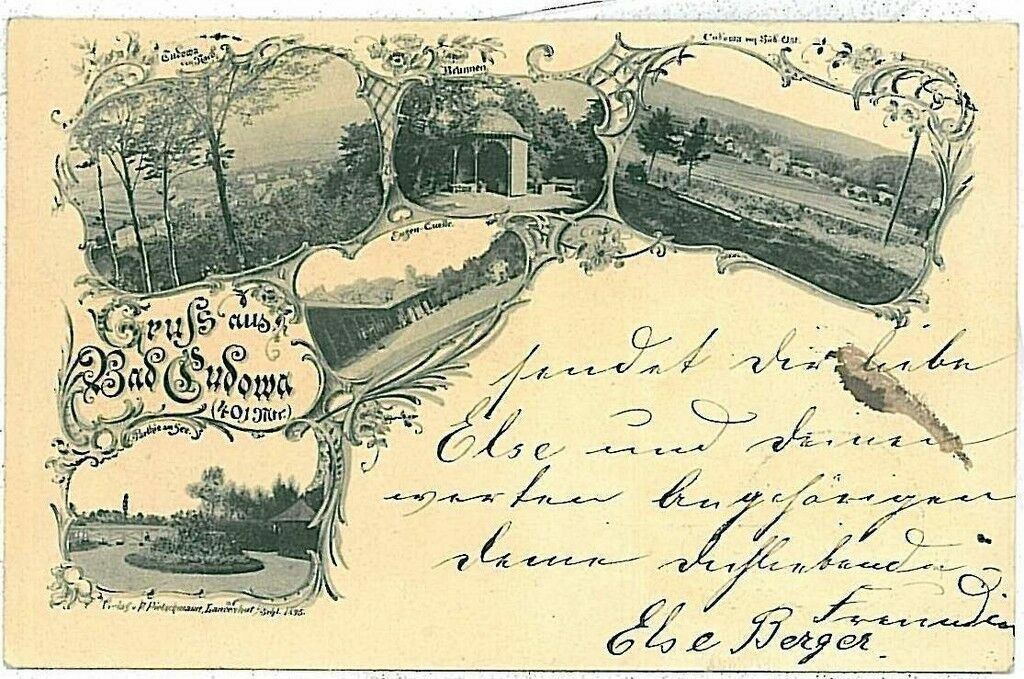 Cudowa
Brunnen
Cudowa
Eugen-Quelle.
Gruß aus
Bad Cudowa
(401 Mtr.)
Partie am See.
Verlag v. P. Pietschmann, Landeshut i. Schl. 1495.
sendet Dir liebe
Else und deinen
werten Angehörigen
deine dichliebende
Freundin
Else Berger.